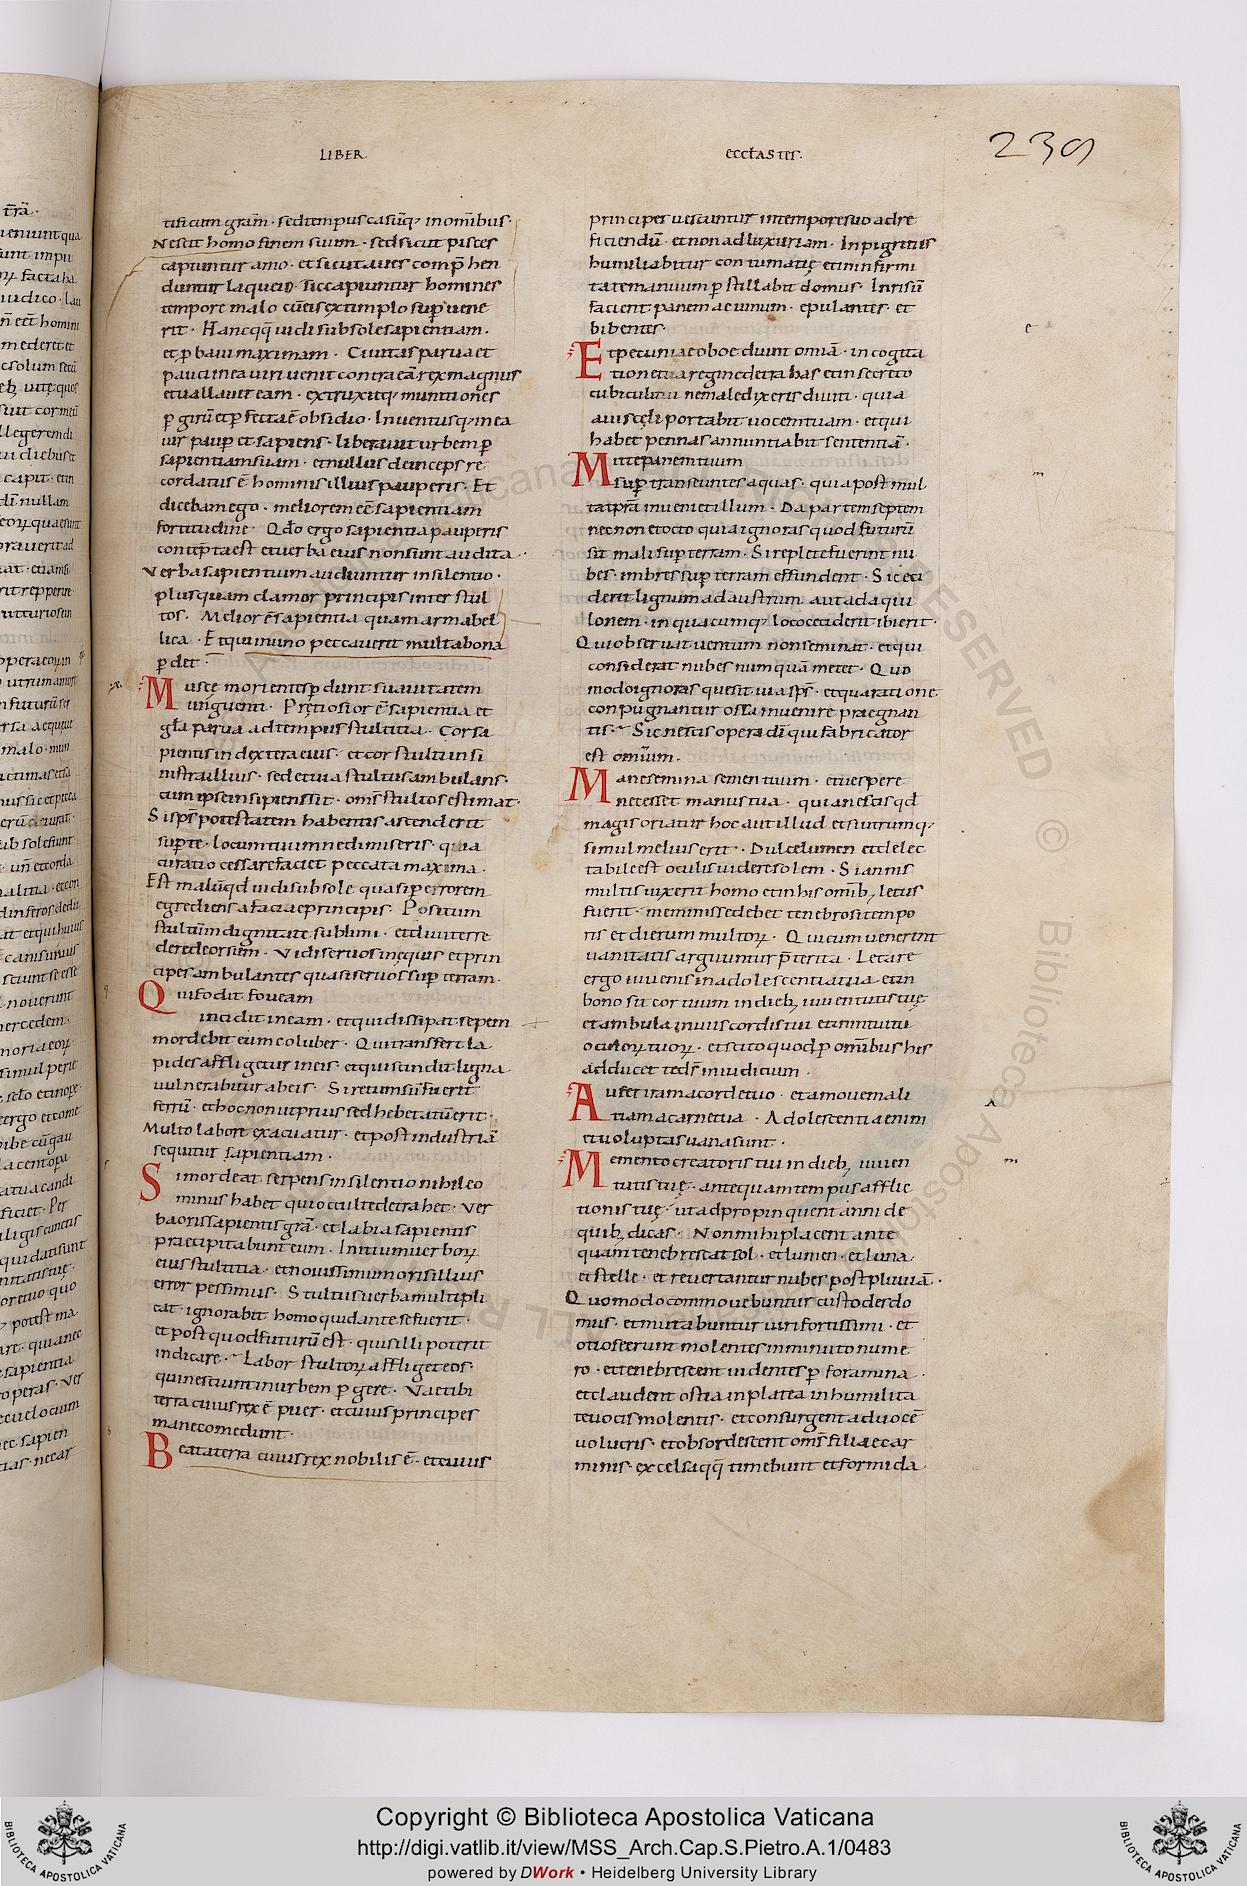 LIBER
eccłastes.
239
tificum grām · sed tempus casūq; in omībus ·
Nescit homo finem suum · sed sicut pisces
capiuntur amo · et sicut aues comp̄hen
duntur laqueo · sic capiuntur homines
tempore malo cū eis extimplo suꝑuene
rit · Hanc qq̄ uidi sub sole sapientiam ·
et ꝓbaui maximam · Ciuitas parua et
pauci in ea uiri uenit contra eā rex magnus
et uallauit eam · extruxitq; munitiones
ꝑ girū et ꝑfecta ē obsidio · Inuentusq; in ea
uir pauꝑ et sapiens · liberauit urbem ꝑ
sapientiam suam · et nullus deinceps re
cordatus ē hominis illius pauperis · Et
dicebam ego · meliorem eē sapientiam
fortitudine · Qđo ergo sapientia pauperis
contēpta est et uerba eius non sunt audita ·
Verba sapientium audiuntur in silentio ·
plus quam clamor principis inter stul
tos · Melior ē sapientia quam arma bel
lica · Et qui in uno peccauerit multa bona
ꝑdet ·
Muscę morientes ꝑdunt suauitatem
unguenti · Prętiosior ē sapientia et
gła parua ad tempus stultitia · Cor sa
pientis in dextera eius · et cor stulti in si
nistra illius · sed et uia stultus ambulans ·
cum ipse insipiens sit · oms̄ stultos estimat ·
Si sps̄ potestatem habentis ascenderit
suꝑ te · locum tuum ne dimiseris · quia
curatio cessare faciet peccata maxima ·
Est malū qđ uidi sub sole quasi ꝑ errorem
egrediens a facie principis · Positum
stultūm dignitate sublimi · et diuites se
dere deorsum · Vidi seruos in equis et prin
cipes ambulantes quasi seruos suꝑ terram ·
Qui fodit foueam
incidit in eam · et qui dissipat sepem
mordebit eum coluber · Qui transfert la
pides affligetur in eis · et qui scindit ligna
uulnerabitur ab eis · Si retunsū fuerit
ferrū · et hoc non ut prius sed hebetatū erit ·
Multo labore exacuatur · et post industriā
sequitur sapientiam ·
Si mordeat serpens in silentio nihil eo
minus habet qui occulte detrahet · Ver
ba oris sapientis grā · et labia sapientis
praecipitabunt eum · Initium uerboꝝ
eius stultitia · et nouissimum oris illius
error pessimus · Stultus uerba multipli
cat · ignorabit homo quid ante se fuerit ·
et post quod futurū est · quis illi poterit
indicare · Labor stultoꝝ affliget eos ·
qui nesciunt in urbem ꝑgere · Vae tibi
terra cuius rex ē puer · et cuius principes
mane comedunt ·
Beata terra cuius rex nobilis ē · et cuius
principes uescuntur in tempore suo ad re
ficiendū · et non ad luxuriam · In pigritiis
humiliabitur contumatię et in infirmi
tate manuum ꝑstillabit domus · In risū
faciunt panem ac uinum · epulantes · et
bibentes ·
Et pecuniae oboediunt omīa · in cogita
tione tua regi ne detrahas et in secreto
cubiculi tui ne maledixeris diuiti · quia
auis cęli portabit uocem tuam · et qui
habet pennas annuntiabit sententiā ·
Mitte panem tuum
suꝑ transeuntes aquas · quia post mul
ta tp̄ra inuenies illum · Da partem septem
nec non et octo quia ignoras quod futurū
sit mali suꝑ terram · Si replete fuerint nu
bes · imbres suꝑ terram effundent · Si ceci
derit lignum ad austrum aut ad aqui
lonem · in quacumq; loco ceciderit ibi erit ·
Qui obseruat uentum non seminat · et qui
considerat nubes numquā metet · Quo
modo ignoras quę sit uia sps̄ · et qua ratione
conpugnantur ossa in uentre praegnan
tis · Sic nescis opera dī qui fabricator
est omīum ·
Mane semina semen tuum · et uespere
ne cesset manus tua · quia nescis qđ
magis oriatur hoc aut illud et si utrumq;
simul melius erit · Dulce lumen et delec
tabile est oculis uidere solem · Si annis
multis uixerit homo et in his omīb; letus
fuerit · meminisse debet tenebrosi tempo
ris et dierum multoꝝ · Qui cum uenerint
uanitatis arguuntur p̄terita · Letare
ergo iuuenis in adolescentia tua et in
bono sit cor tuum in dieb; iuuentutis tuę
et ambula in uiis cordis tui et in intuitu
oculoꝝ tuoꝝ · et scito quod ꝓ omībus his
adducet te ds̄ in iudicium ·
Aufer iram a corde tuo · et amoue mali
tiam a carne tua · Adolescentia enim
et uoluptas uana sunt ·
Memento creatoris tui in dieb; iuuen
tutis tuę · antequam tempus afflic
tionis tuę · ut adpropinquent anni de
quib; dicas · Non mihi placent ante
quam tenebrescat sol · et lumen · et luna ·
et stelle · et reuertantur nubes post pluuiā ·
Quomodo commouebuntur custodes do
mus · et mutabuntur uiri fortissimi · et
otiose erunt molentes in minuto nume
ro · et tenebrescent uidentes ꝑ foramina ·
et claudent ostia in platea in humilita
te uocis molentis · et consurgent ad uocē
uolucris · et obsordescent oms̄ filiae car
minis · excelsa qq̄ timebunt et formida
Copyright © Biblioteca Apostolica Vaticana
http://digi.vatlib.it/view/MSS_Arch.Cap.S.Pietro.A.1/0483
powered by DWork • Heidelberg University Library